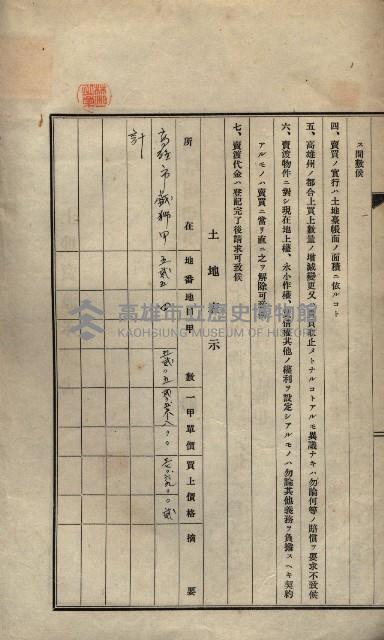 ス間敷候
四、賣買ノ實行ハ土地臺帳面ノ面積ニ依ルコト
五、高雄州ノ都合上買上數量ノ增減變更又ハ買收止メトナルコトアルモ異議ナキハ勿論何等ノ賠償ヲ要求不致候
六、賣渡物件ニ對シ現在地上權、永小作權、賃借權其他ノ權利ヲ設定シアルモノハ勿論其他義務ヲ負擔スヘキ契約
アルモノハ賣買ニ當リ直ニ之ヲ解除可致候
七、賣渡代金ハ登記完了後請求可致候
土地表示
所在 地番 地目 甲數 一甲單價 買上價格 摘要
高雄市戲獅甲 五貳五
計
高雄市立歷史博物館
KAOHSIUNG MUSEUM OF HISTORY